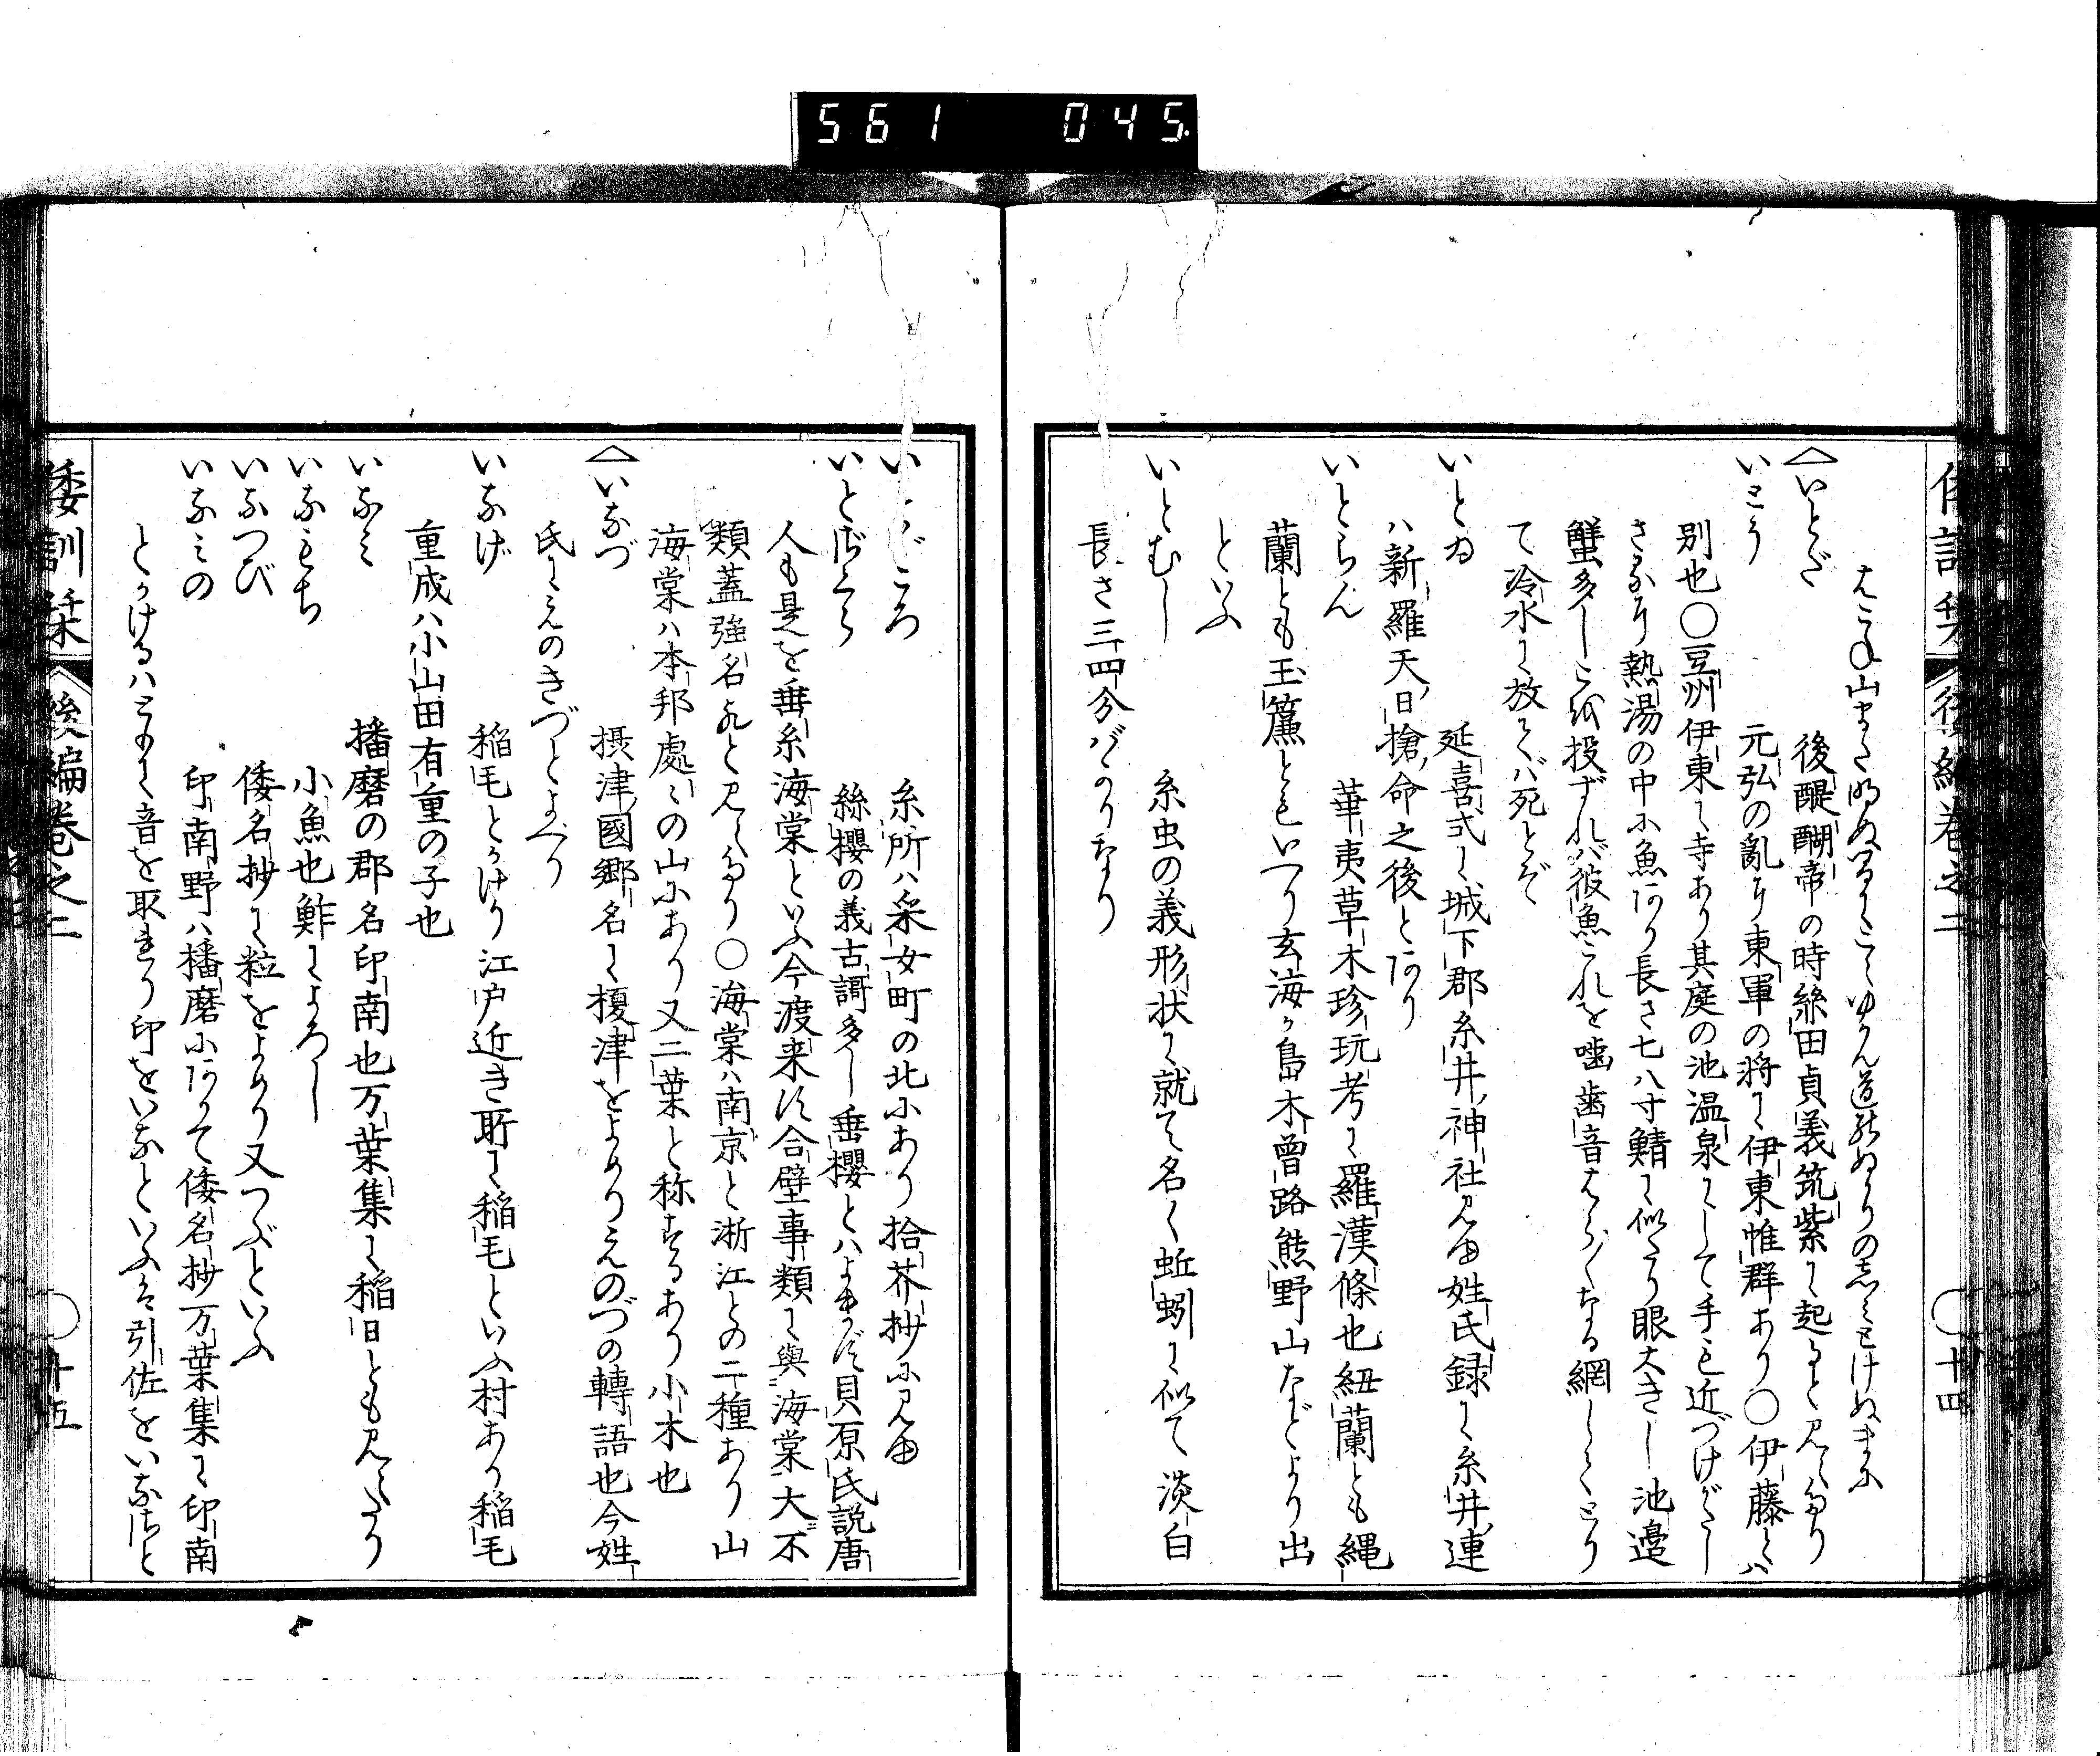 561 045
倭訓栞 後編巻之二 ○十四
はこね山まだ明ぬ
いとだ 後醍醐帝の時絲田貞義筑紫に起ると見えたり
いとう 元弘の亂に東軍の將に伊東惟群あり○伊藤とハ
別也○豆州伊東に寺あり其庭の池温泉にして手も近づけがたし
さるに熱湯の中に魚あり長さ七八寸鯖に似たり眼大きし池邉
蟹多しこを投ずれバ彼魚これを噛歯音はら〱なる網しとり
て冷水に放てバ死とぞ
いとゐ 延喜式に城下郡糸井神社見ゆ姓氏録に糸井連
ハ新羅天日槍命之後とあり
いとらん 華夷草木珍玩考に羅漢條也紐蘭とも縄
蘭とも玉簾ともいへり玄海か島木曽路熊野山などより出
といふ
いとむし 糸虫の義形状に就て名く蚯蚓に似て淡白
長さ三四分ばかりなり
いとどころ 糸所ハ采女町の北にあり拾芥抄に見ゆ
いとざくら 絲櫻の義古謌多し垂櫻とハよまず貝原氏説唐
人も是を垂糸海棠といふ今渡来す合璧事類に與海棠大不
類蓋強名耳と見えたり○海棠ハ南京と浙江との二種あり山
海棠ハ本邦處〻の山にあり又二葉と称するあり小木也
いなづ 摂津國郷名に榎津をよめりえのづの轉語也今姓
氏にえのきづとよべり
いなげ 稲毛とかけり江戸近き所に稲毛といふ村あり稲毛
重成ハ小山田有重の子也
いなみ 播磨の郡名印南也万葉集に稲日とも見えたり
いなもち 小魚也鮓によろし
いなつび 倭名抄に粒をよめり又つぶといふ
いなみの 印南野ハ播磨にありて倭名抄万葉集に印南
とかけるハミの音を取れり印をいなといふは引佐をいなさと
倭訓栞 後編巻之二 ○十五